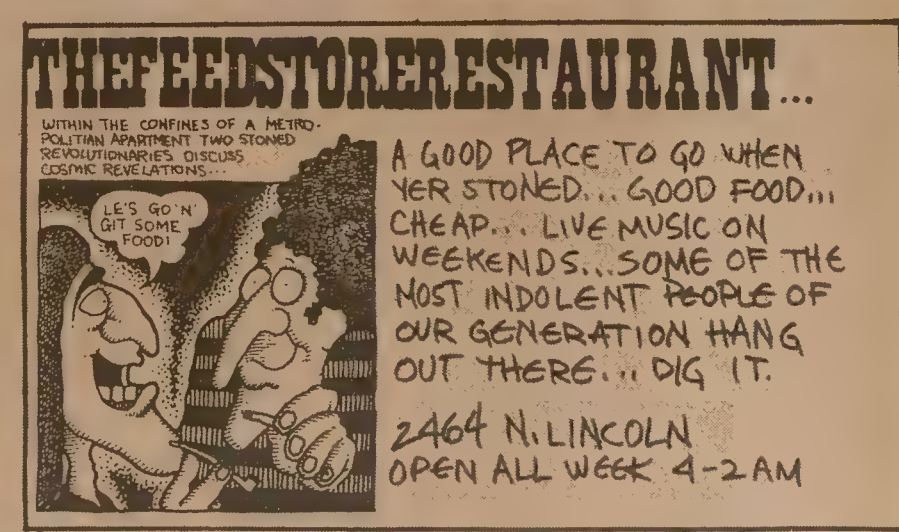 THEFEEDSTORERESTAURANT...
WITHIN THE CONFINES OF A METRO-
POLITIAN APARTMENT TWO STONED
REVOLUTIONARIES DISCUSS
COSMIC REVELATIONS...
LE'S GO 'N'
GIT SOME
FOOD!
A GOOD PLACE TO GO WHEN
YER STONED... GOOD FOOD...
CHEAP... LIVE MUSIC ON
WEEKENDS...SOME OF THE
MOST INDOLENT PEOPLE OF
OUR GENERATION HANG
OUT THERE... DIG IT.
2464 N. LINCOLN
OPEN ALL WEEK 4-2 AM